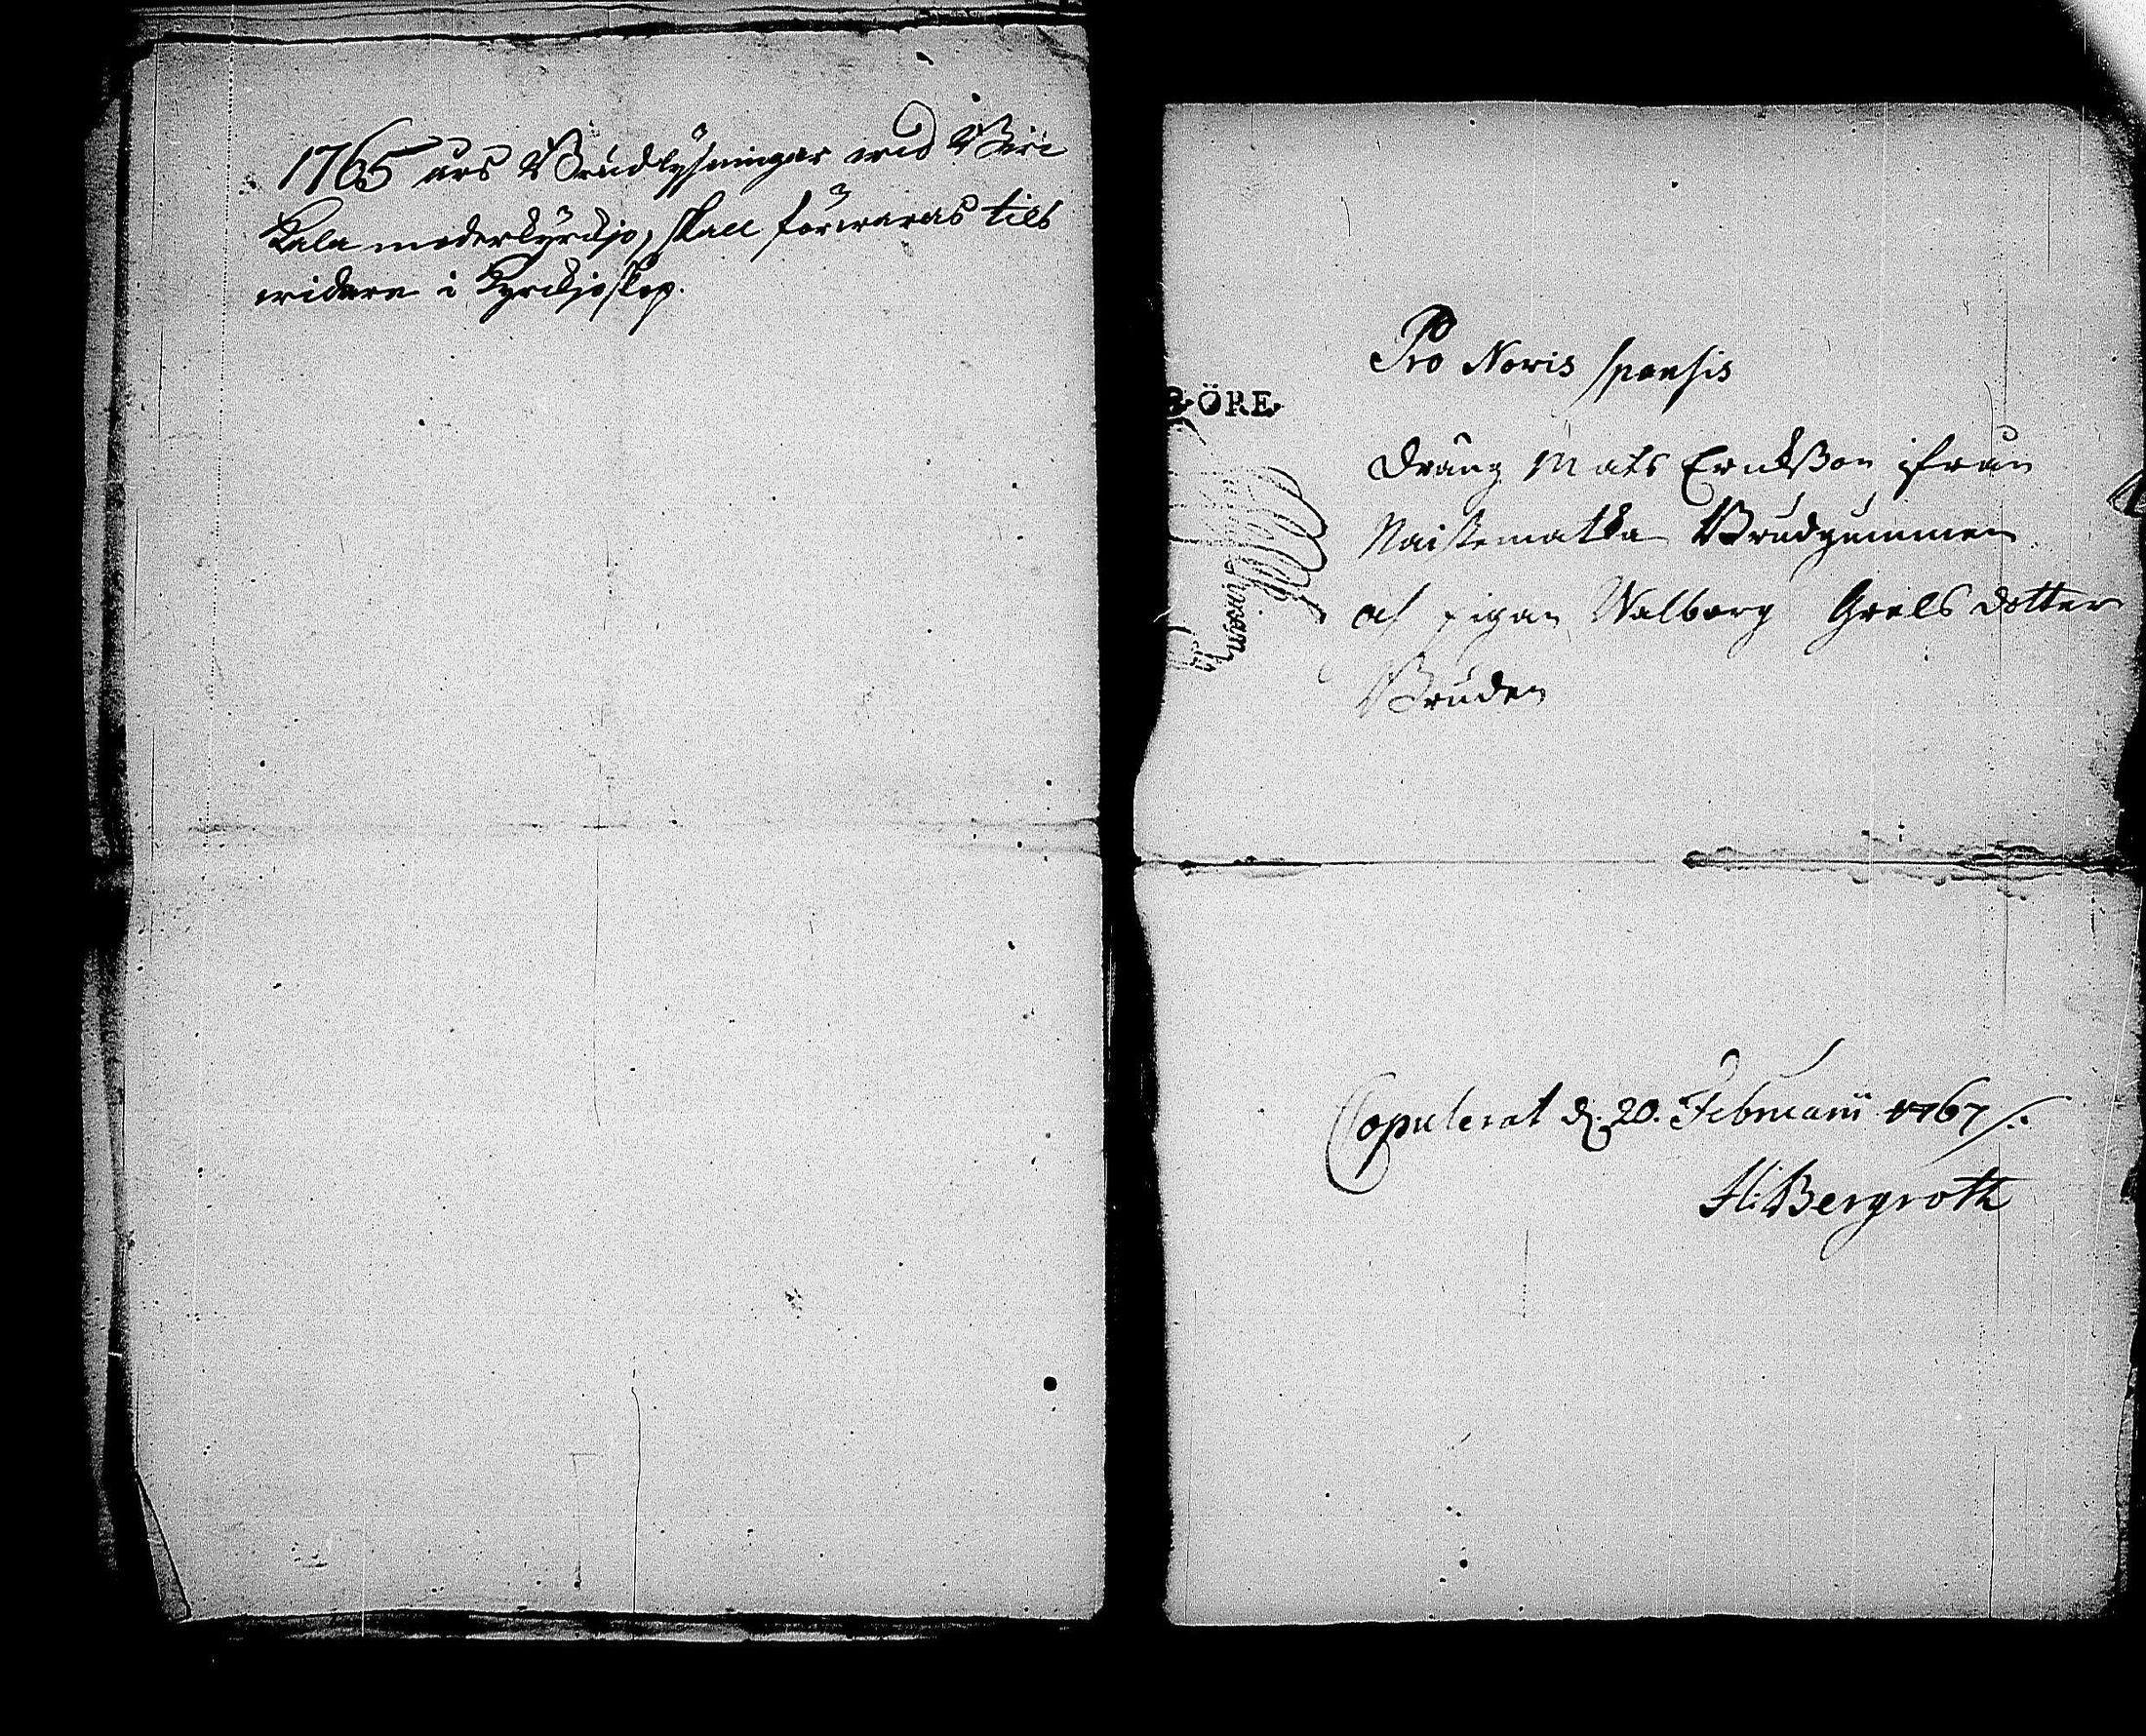 1765 års Brudlysningar wid Biri
Kala moderkyrckjo, skall förwaras tils
widare i Kyrckjoskåp.
Pro Novis sponsis
ÖRE.
Dräng Mats Erickßon ifrån
Naistematka Brudgummen
och pigan Walborg Grels dotter
Bruden
Copulerat d. 20. Februarii 1767/.
H: Bergroth